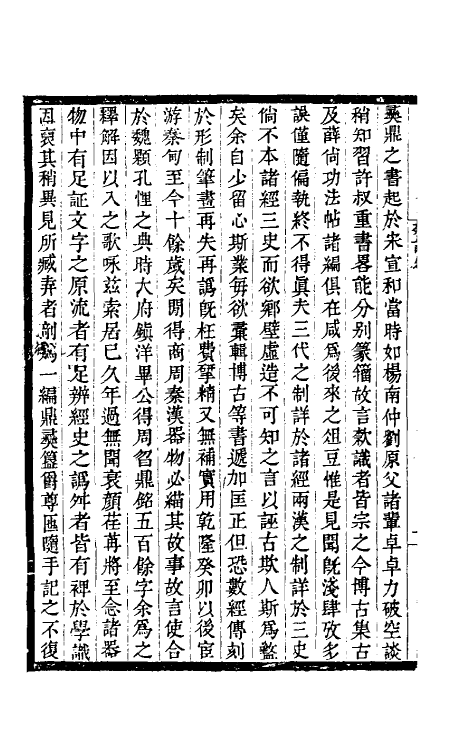 彞鼎之書起於宋宣和當時如楊南仲劉原父諸輩卓卓力破空談
稍知習許叔重書畧能分別篆籀故言款識者皆宗之今博古集古
及薛尙功法帖諸編俱在咸爲後來之俎豆惟是見聞旣淺肆攷多
誤僅隨偏執終不得眞夫三代之制詳於諸經兩漢之制詳於三史
倘不本諸經三史而欲鄉壁虛造不可知之言以誣古欺人斯爲盭
矣余自少留心斯業每欲彙輯博古等書遞加匡正但恐數經傳刻
於形制筆畫再失再譌旣枉費挐精又無補實用乾隆癸卯以後宦
游秦甸至今十餘歲矣閒得商周秦漢器物必緢其故事故言使合
於魏顆孔悝之典時大府鎭洋畢公得周曶鼎銘五百餘字余爲之
釋解因以入之歌咏玆索居已久年過無聞衰顏荏苒將至念諸器
物中有足証文字之原流者有足辨經史之譌舛者皆有裨於學識
因裒其稍異見所臧弆者剞爲一編鼎彞簋爵尊匜隨手記之不復